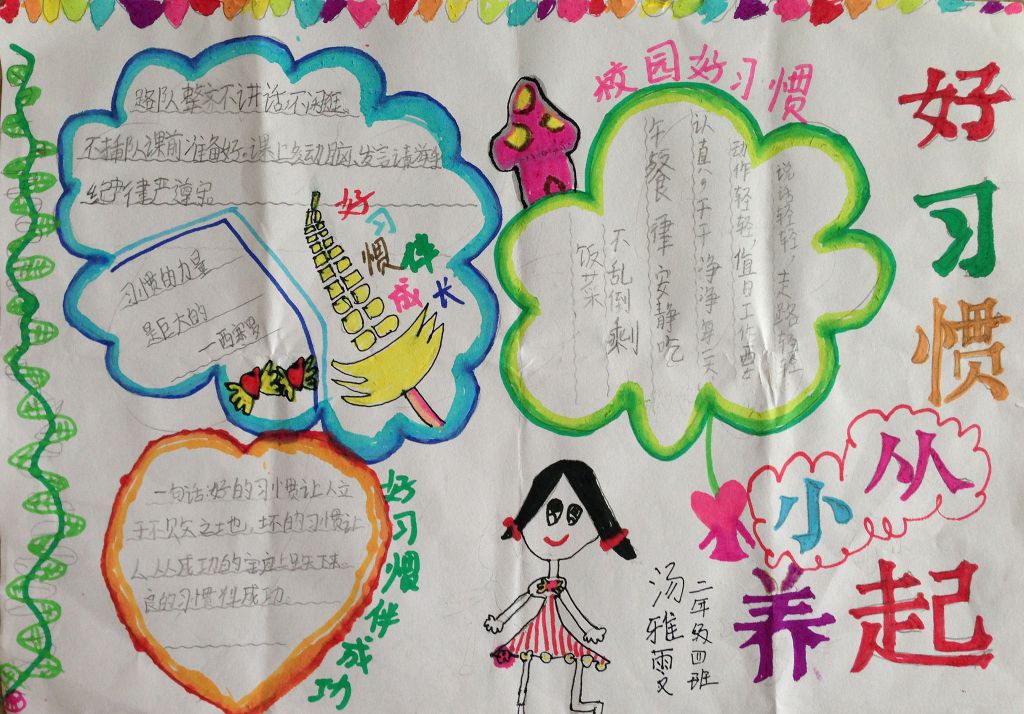 好习惯
从小
养起
校园好习惯
说话轻轻 走路轻轻
动作轻轻,值日工作要
认真。干干净净每一天
午餐 律 安静吃
不乱倒剩
饭菜
路队整齐不讲话,不
不插队,课前准备好,课上多动脑、发言请举手
纪律严遵守
好习惯伴成长
习惯的力量
是巨大的
一西塞罗
一句话:好的习惯让人立
于不败之地,坏的习惯让
人从成功的宝座上跌下来。
良的习惯伴成功。
好习惯伴成功
二年级四班
汤雅雯